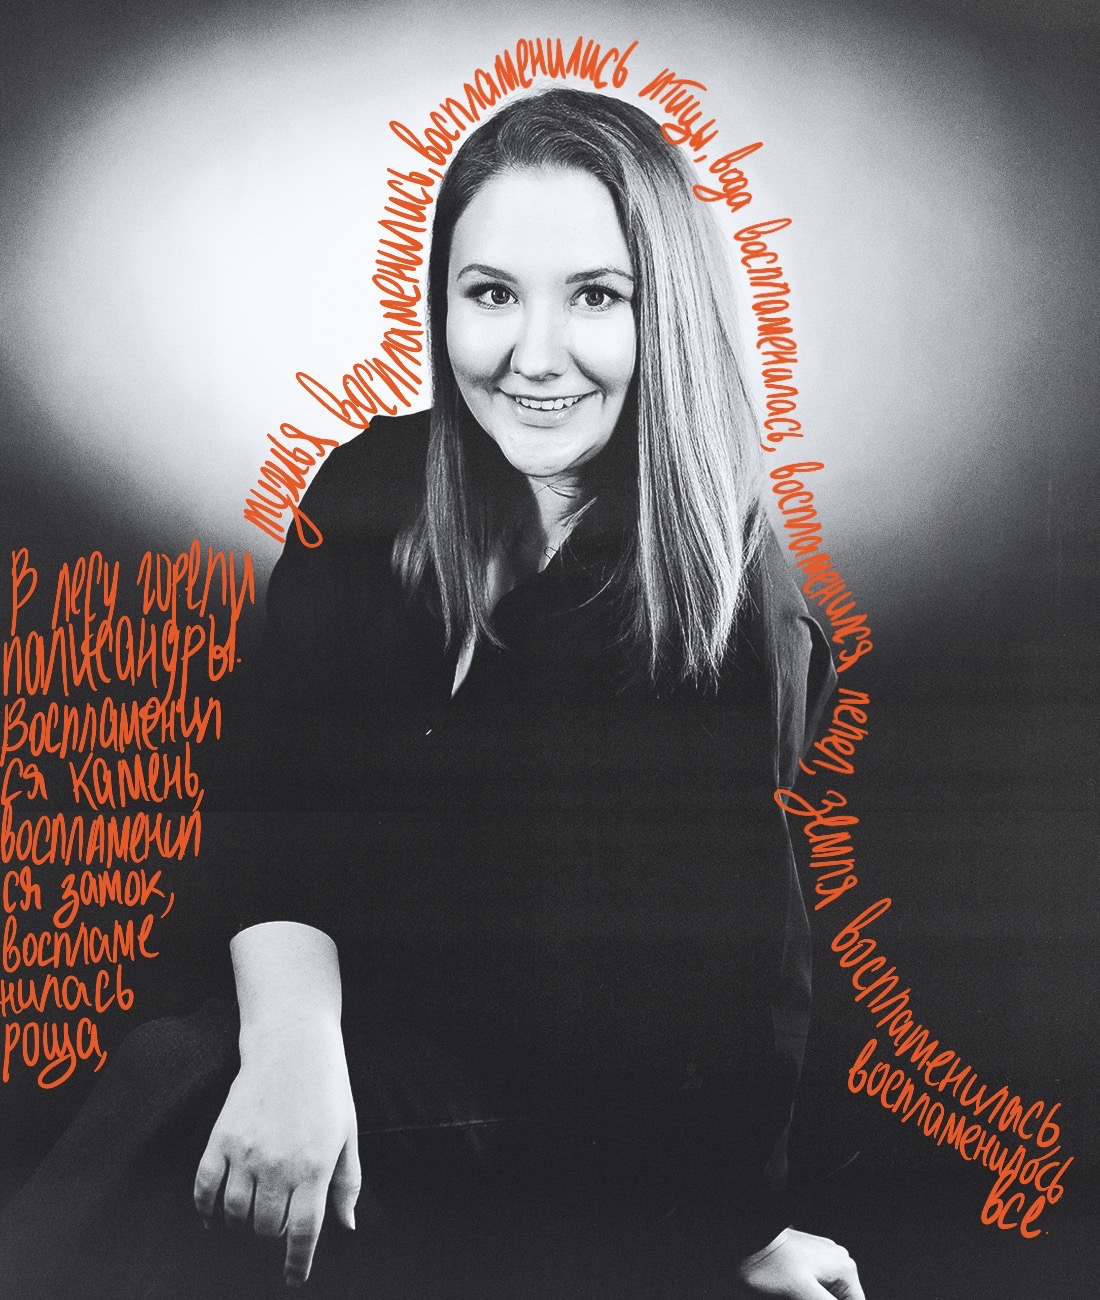 В лесу горели
палисандры.
Воспламенил
ся камень,
воспламенил
ся замок,
воспламе
нилась
роща,
мужья воспламенились, воспламенились птицы, вода воспламенилась, воспламенился пепел, земля воспламенилась,
воспламенилось
все.